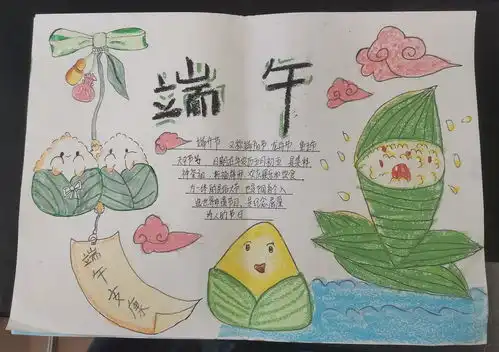 端 午
端午节 又称端阳节 龙舟节 重午节
天中节等 日期在每年农历五月初五 是集拜
神祭祖 祈福辟邪 欢庆娱乐和饮食
为一体的民俗大节
诗人的节日
端午安康